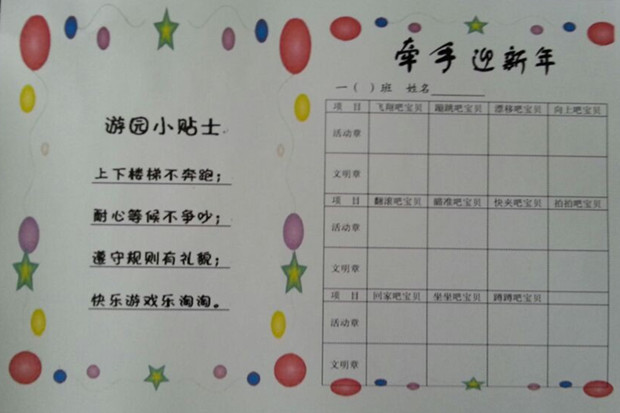 游园小贴士
上下楼梯不奔跑；
耐心等候不争吵；
遵守规则有礼貌；
快乐游戏乐淘淘。
牵手迎新年
一（ ）班 姓名
项 目 飞翔吧宝贝 蹦跳吧宝贝 漂移吧宝贝 向上吧宝贝
活动章
文明章
项 目 翻滚吧宝贝 瞄准吧宝贝 快夹吧宝贝 拍拍吧宝贝
活动章
文明章
项 目 回家吧宝贝 坐坐吧宝贝 蹲蹲吧宝贝
活动章
文明章